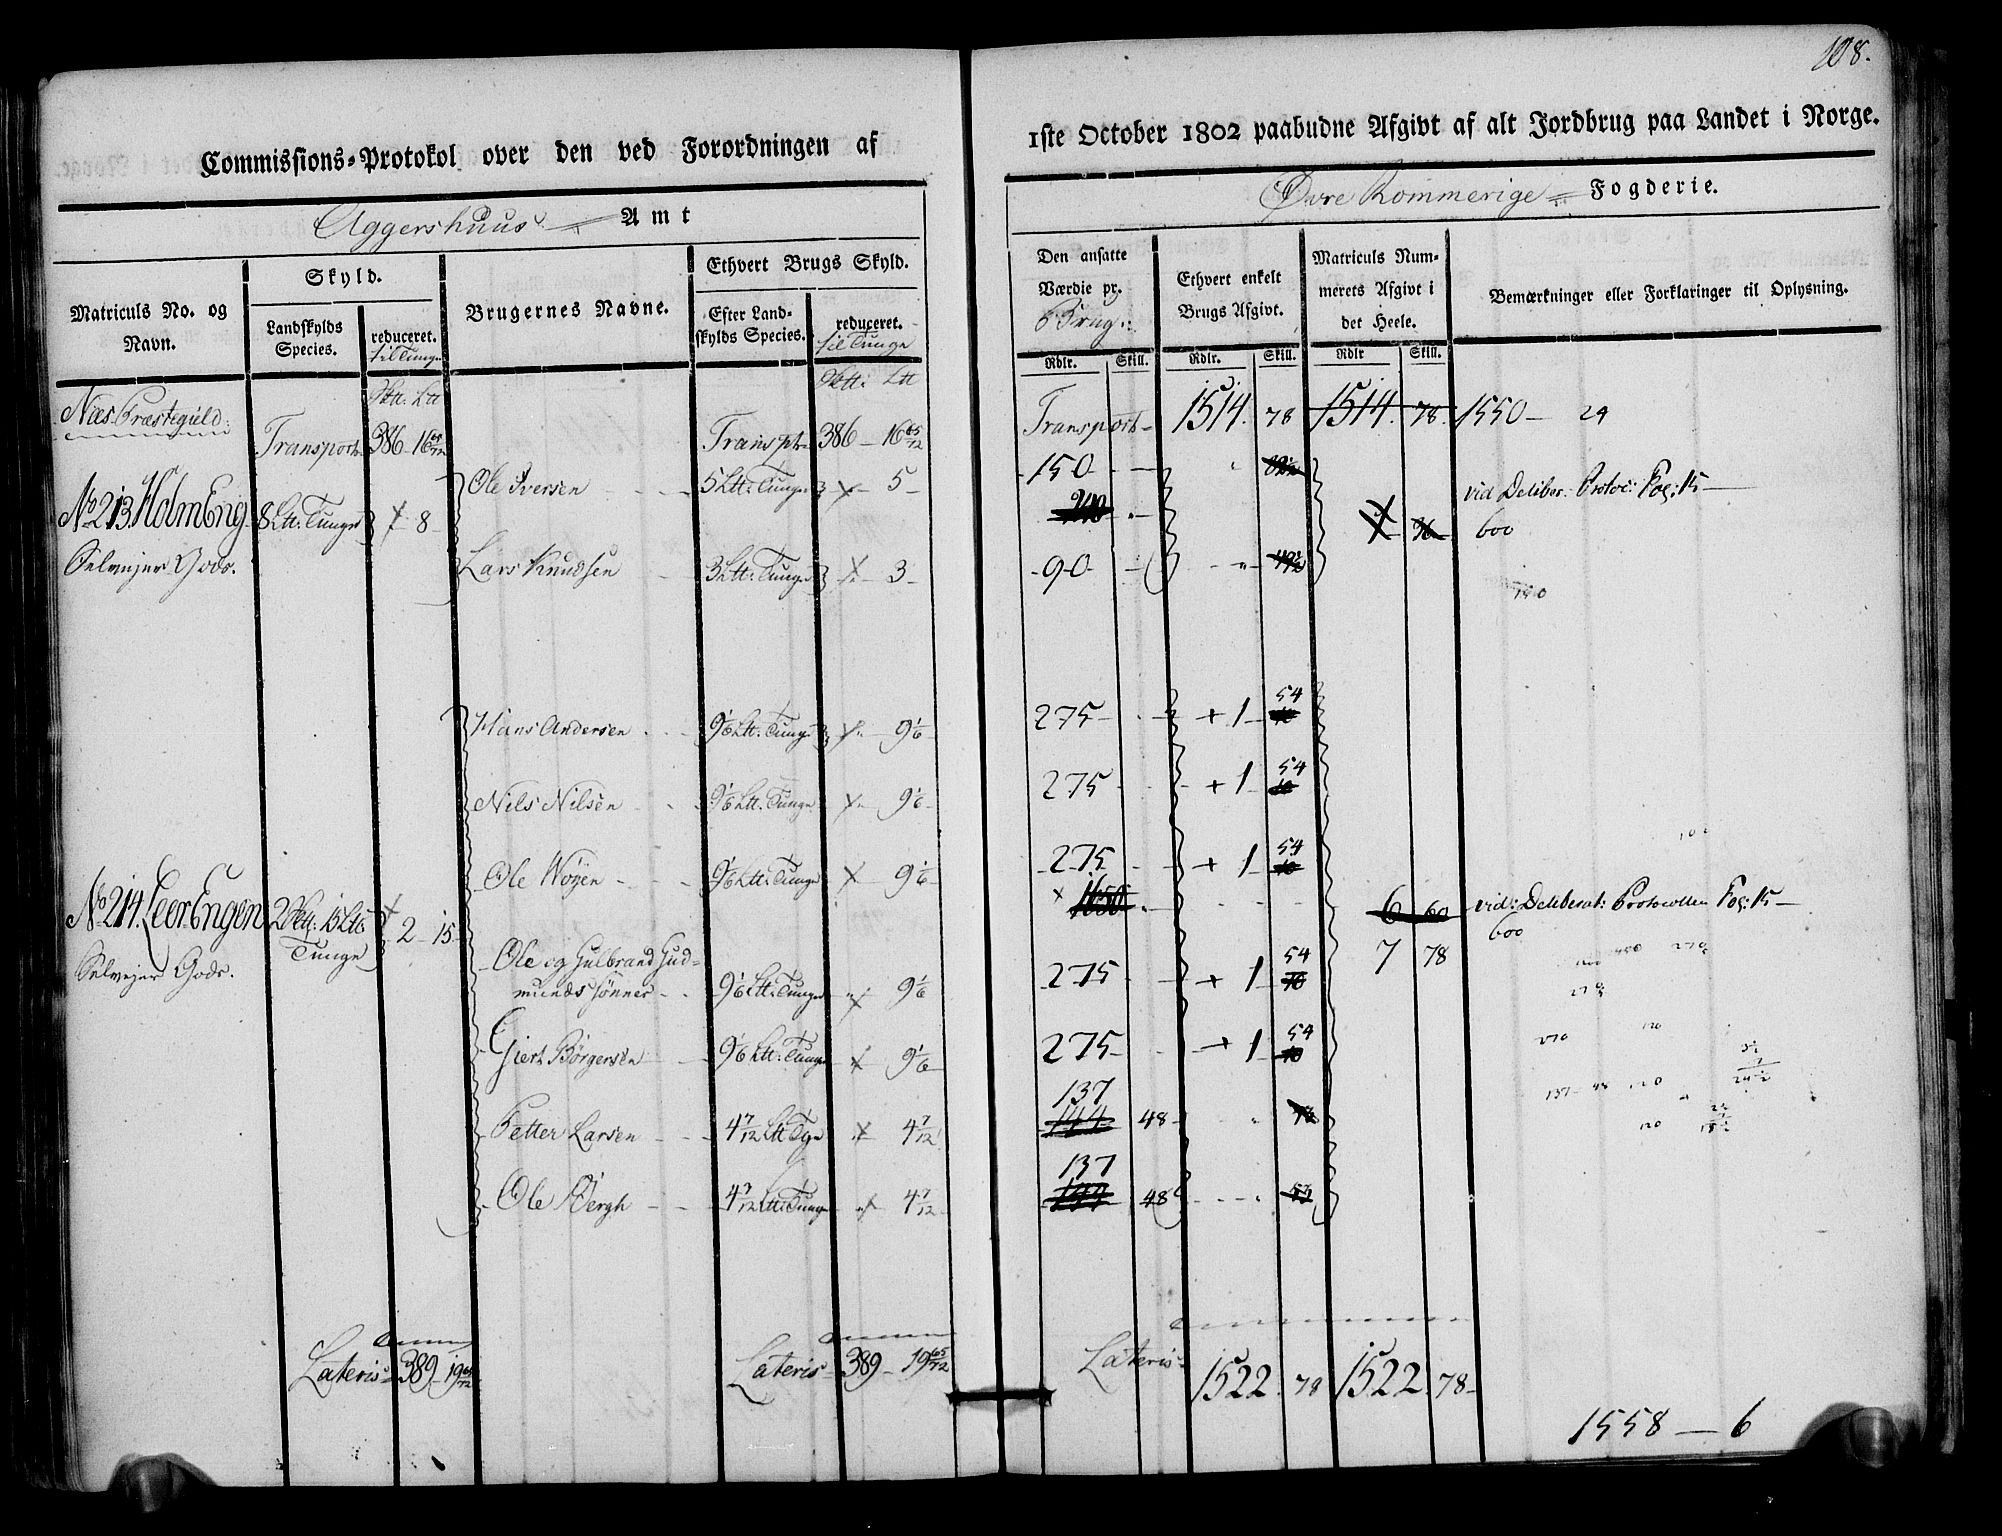 108.
Commissions-Protokol over den ved Forordningen af
1ste October 1802 paabudne Afgivt af alt Jordbrug paa Landet i Norge.
Aggershuus Amt
Øvre Rommerige Fogderie.
Matriculs No. og Navn.
Skyld.
Landskylds Species.
reduceret.
til Tunge
Brugernes Navne.
Ethvert Brugs Skyld.
Efter Landskylds Species.
reduceret.
til Tunge
Den ansatte Værdie pr. Brug.
Ethvert enkelt Brugs Afgivt.
Matriculs Nummerets Afgivt i det Heele.
Bemærkninger eller Forklaringer til Oplysning.
Rdlr. Skill. Rdlr. Skill. Rdlr Skill.
Næs Præstegield:
Transport 386 - 16 65/72 Transpt 386 - 16 65/72 Transport 1514. 78 1514. 78. 1550 - 24
No 213. Holm Eng 8 Ltt: Tunge 8
Selvejer Gods.
Ole Iversen 5 Ltt: Tunge 5 150 vid Deliber. Protoc: Fol: 15
240 600
Lars Knudsen 3 Ltt: Tunge 3 90
Hans Andersen 9 1/6 Ltt: Tunge 9 1/6 275 + 1 54
Nils Nilsen 9 1/6 Ltt: Tunge 9 1/6 275 + 1 54
Ole Noyen 9 1/6 Ltt: Tunge 9 1/6 275 + 1 54
No 214. Leer Engen 15 Ltt: Tunge 2 15 1650 6 60 vid: Deliberat: Protocollen Fol: 15
Selvejer Gods. 7 78 600
Ole og Gulbrand Gudmunds sønner 9 1/6 Ltt: Tunge 9 1/6 275 + 1 54
Giert Børgersen 9 1/6 Ltt: Tunge 9 1/6 275 + 1 54
137
Petter Larsen 4 7/12 Ltt Tge 4 7/12 144 48
137
Ole Bergh 4 7/12 Ltt: Tunge 4 7/12 144 48
Lateris 389 - 19 65/72 Lateris 389 - 19 65/72 Lateris 1522. 78 1522. 78
1558 - 6